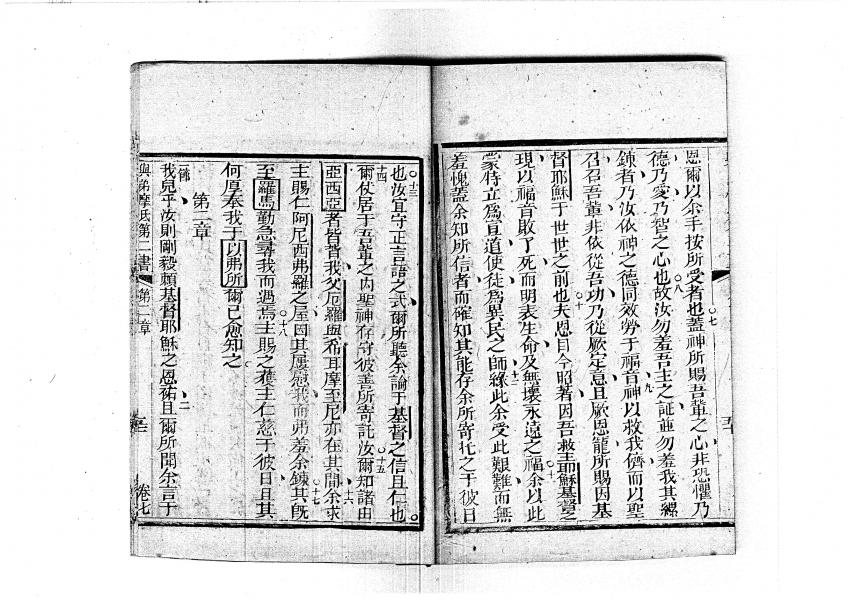 恩爾以余手按所受者也蓋神所賜吾輩之心非恐懼乃
德乃愛乃智之心也故汝勿羞吾主之証並勿羞我其縲
錬者乃汝依神之德同效勞于福音神以救我儕而以聖
召召吾輩非依從吾功乃從厥定意且厥恩寵所賜因基
督耶穌于世世之前也夫恩目今昭著因吾救主耶穌基督之
現以福音敗了死而明表生命及無壞永遠之福余以此
蒙特立爲宣道使徒爲異民之師緣此余受此艱難而無
羞愧蓋余知所信者而確知其能存余所寄托之于彼日
也汝宜守正言語之式爾所聽余論于基督之信且仁也
爾仗居于吾輩之內聖神存守彼善所寄託汝爾知諸由
亞西亞者皆背我父厄羅與希耳摩至尼亦在其間余求
主賜仁阿尼西弗羅之屋因其屢慰我而弗羞余錬其旣
至羅馬勤急尋我而遇焉主賜之獲主仁慈于彼日且其
何厚奉我于以弗所爾已愈知之
第二章
我兒乎汝則剛毅賴基督耶穌之恩祐且爾所聞余言于
與弟摩氐第二書 第二章 卷七